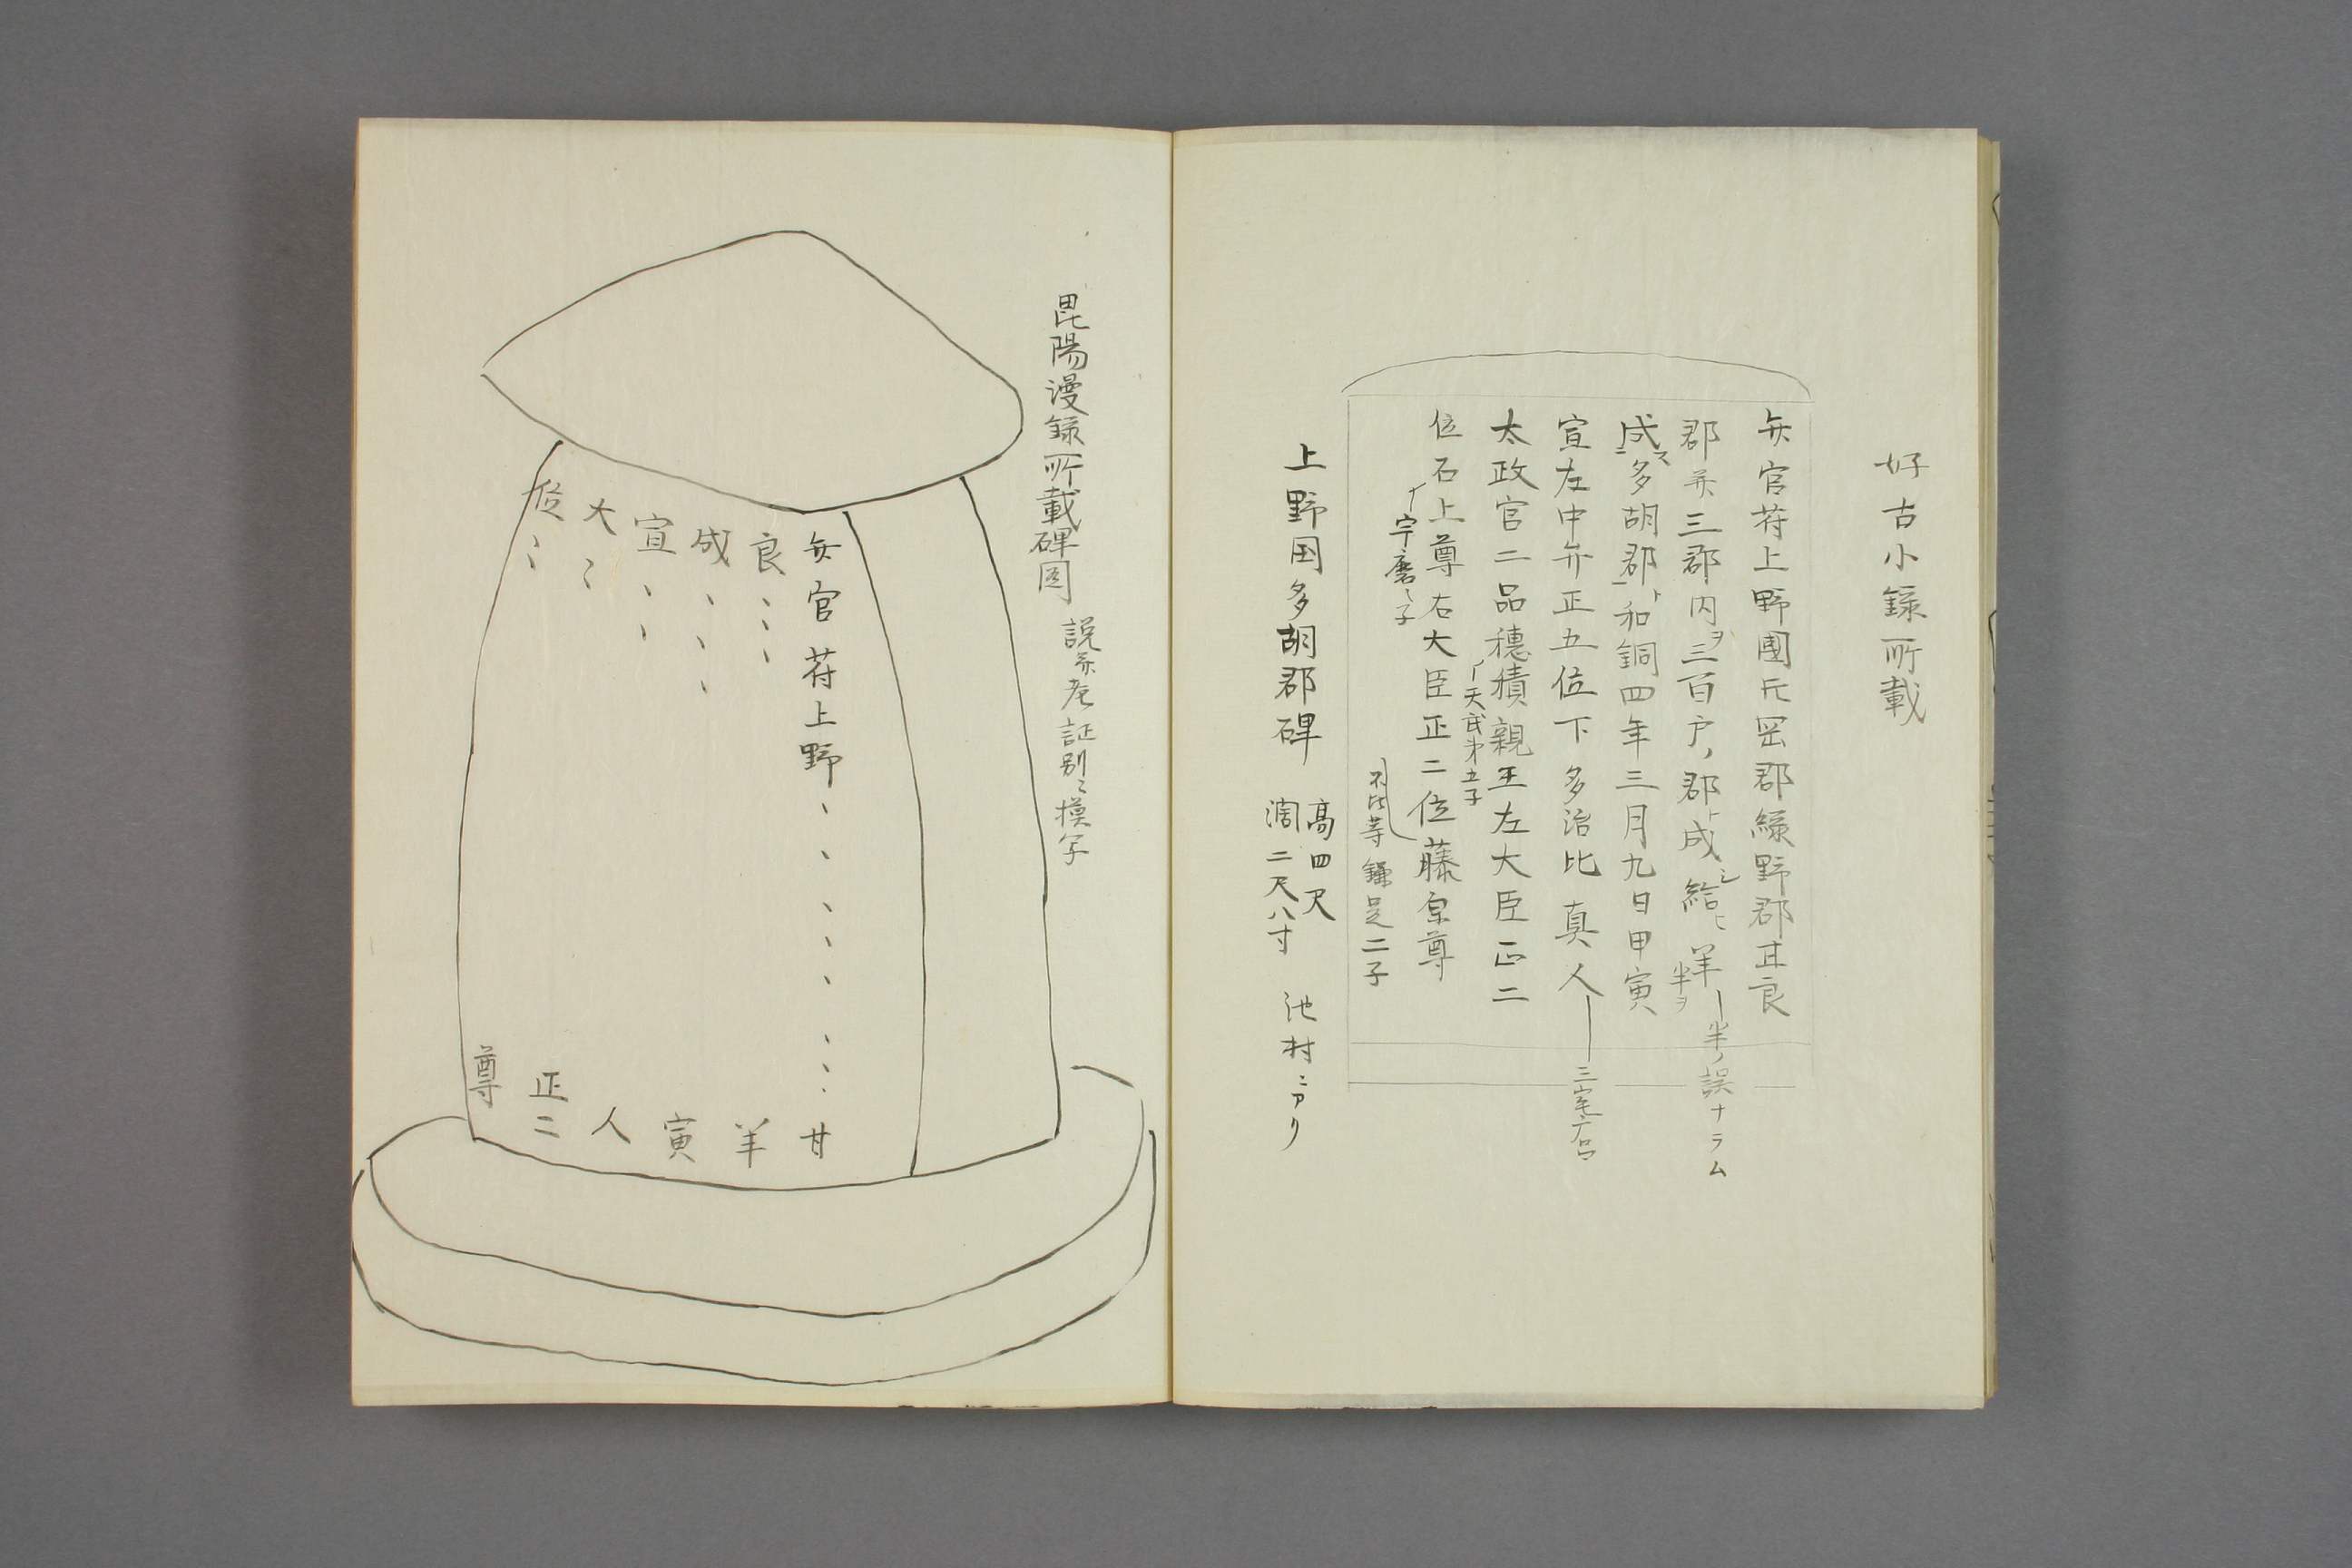 好古小録所載
弁官苻上野國片岡郡緑野郡甘良
郡并三郡内ヲ三百戸郡ト成シ給ヒ羊
半ヲ
半ノ誤ナラム
成多胡郡ト和銅四年三月九日甲寅
宣左中弁正五位下多治比真人
三宅
太政官二品穂積親王左大臣正二
天武第五子
位石上尊右大臣正二位藤原尊
宇麿ノ子
不比等鎌足二子
上野国多胡郡碑 高四尺 濶二尺八寸 池村ニアリ
昆陽漫録所載碑図 説并考証別ニ模写
弁官苻上野、、、、、、、、甘
良、、、羊
成、、、寅
宣、、人
大ミ正二
位ミ尊